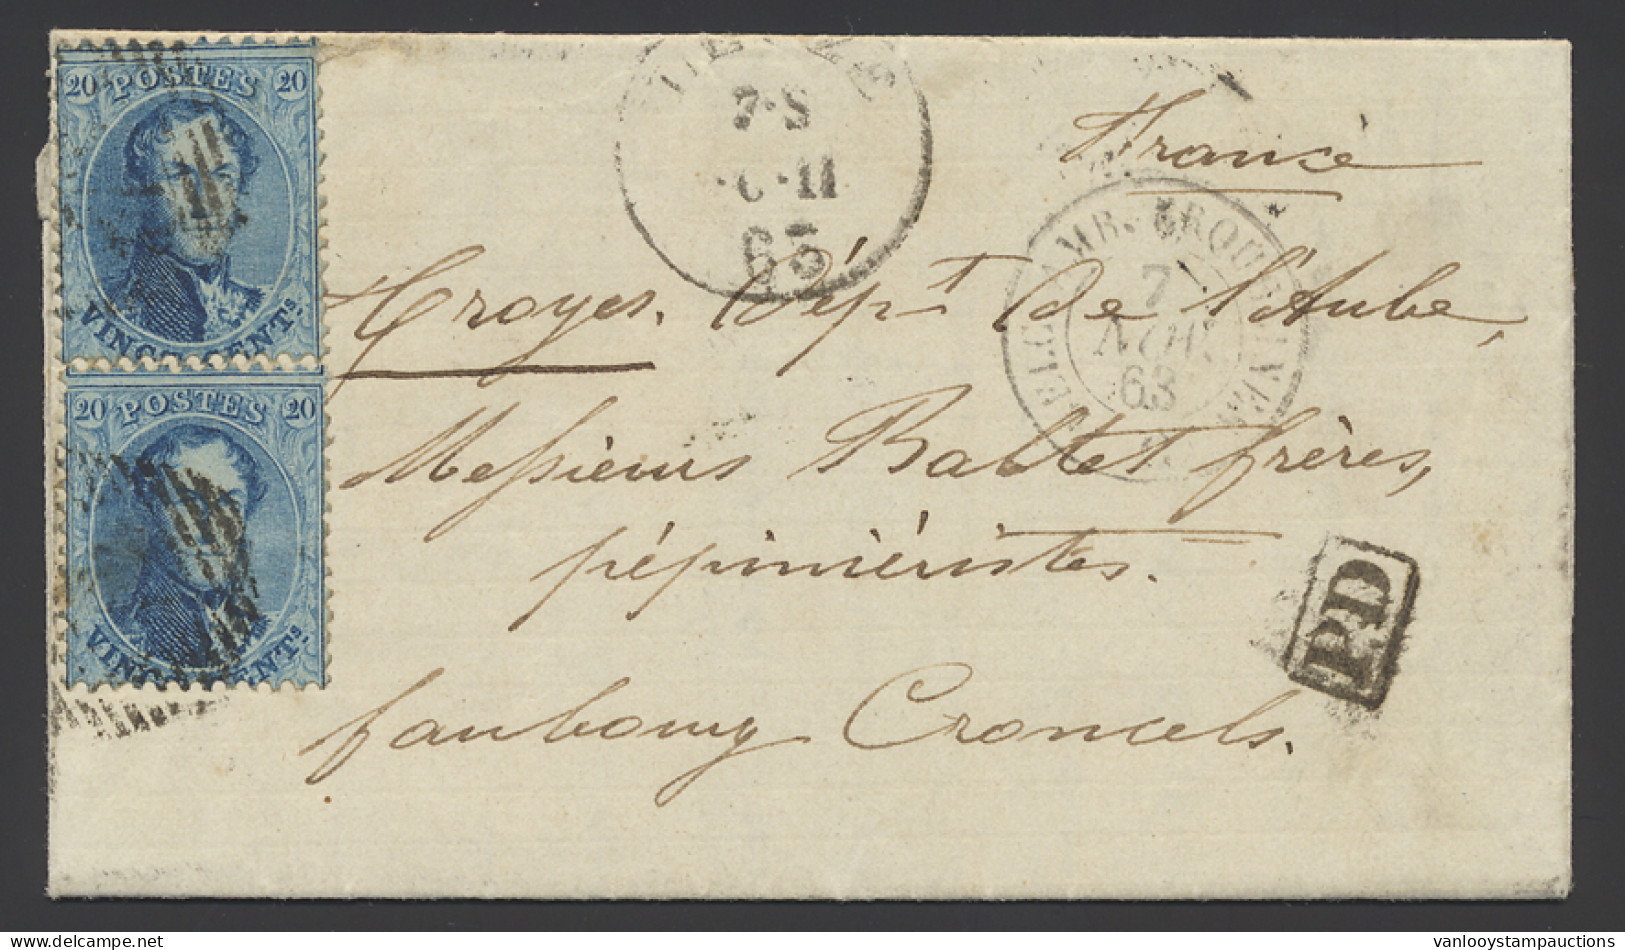 20 POSTES 20
VINGT CENTS.
20 POSTES 20
VINGT CENTS.
7·S
·II
63
France
7
NOV.
63
Troyes. Dépt de l'Aube,
Messieurs Baltet frères,
pépiniéristes.
faubourg Croncels.
P.D
vanlooystampauctions